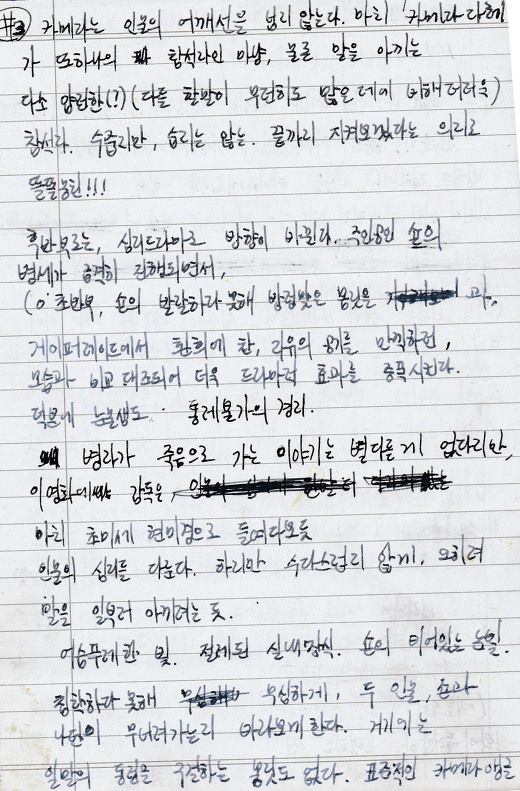 #3 카메라는 인물의 어깨선을 넘지 않는다. 마치 카메라 자체
가 또하나의 참석자인 마냥, 물론 말을 아끼는
다소 얌전한(?) (다들 한말이 무던히도 많은 데에 비해 더더욱)
참석자. 수줍지만, 숨지는 않는. 끝까지 지켜보겠다는 의지로
똘똘뭉친!!!
후반부로는, 심리드라마로 방향이 바뀐다. 주인공인 숀의
병세가 급격히 진행되면서,
(이 초반부, 숀의 발랄하다 못해 방정맞은 몸짓은 과,
게이퍼레이드에서 환희에 찬, 자유의 공기를 만끽하던,
모습과 비교 대조되어 더욱 드라마적 효과를 증폭시킨다.
덕분에 눈물샘도 통제불가의 경지.
병자가 죽음으로 가는 이야기는 별다를게 없다지만,
이 영화에서 감독은,
마치 초미세 현미경으로 들여다보듯
인물의 심리를 다룬다. 하지만 수다스럽지 않게. 오히려
말을 일부러 아끼려는 듯.
어슴푸레한 빛. 절제된 실내장식. 숀의 비어있는 눈빛.
침착하다 못해 무심하게, 두 인물, 숀과
나톤이 무너져가는지 바라보게 한다. 거기에는
일말의 동정을 구걸하는 몸짓도 없다. 표준적인 카메라 앵글